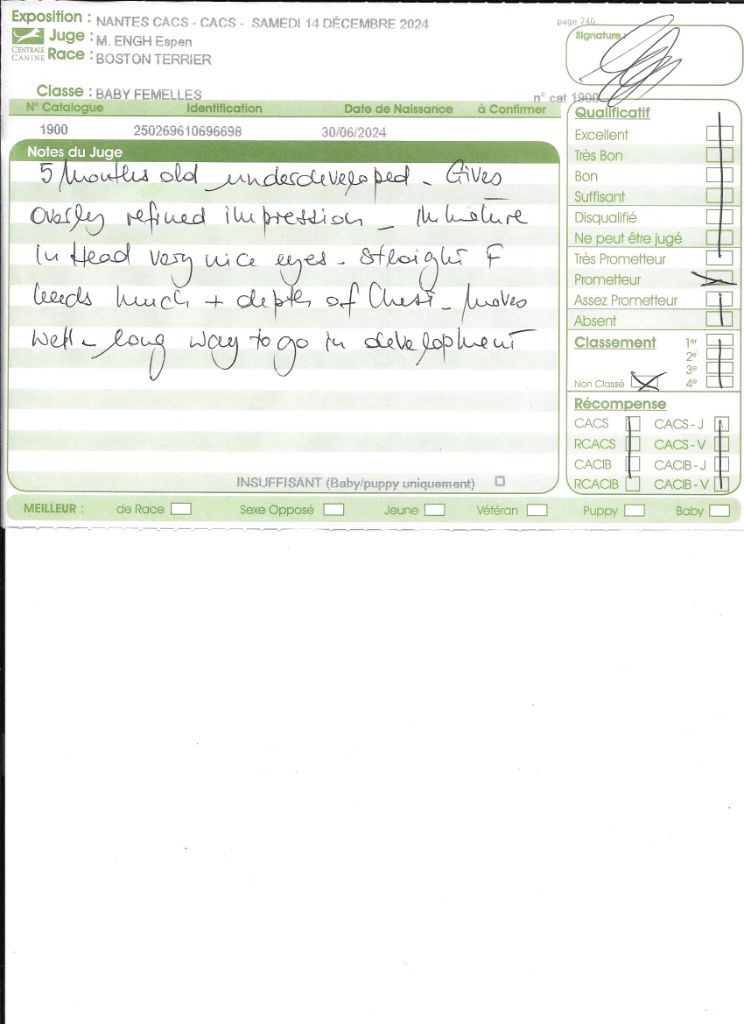 Exposition : NANTES CACS - CACS - SAMEDI 14 DÉCEMBRE 2024
page 746
Juge : M. ENGH Espen
CENTRALE CANINE
Race : BOSTON TERRIER
Signature :
Classe : BABY FEMELLES
n° cat 1900
N° Catalogue Identification Date de Naissance à Confirmer
1900 250269610696698 30/06/2024
Notes du Juge
5 Months old underdeveloped - Gives
overly refined impression - Immature
in Head very nice eyes - straight F
needs much + depth of Chest - Moves
well - long way to go in development
INSUFFISANT (Baby/puppy uniquement)
Qualificatif
Excellent
Très Bon
Bon
Suffisant
Disqualifié
Ne peut être jugé
Très Prometteur
Prometteur
Assez Prometteur
Absent
Classement 1er
2e
3e
Non Classé 4e
Récompense
CACS CACS - J
RCACS CACS - V
CACIB CACIB - J
RCACIB CACIB - V
MEILLEUR : de Race Sexe Opposé Jeune Vétéran Puppy Baby